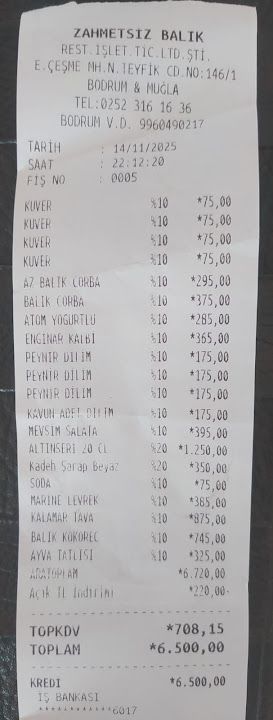 ZAHMETSIZ BALIK
REST.İŞLET.TİC.LTD.ŞTİ.
E.ÇEŞME MH.N.TEYFİK CD.NO:146/1
BODRUM & MUĞLA
TEL:0252 316 16 36
BODRUM V.D. 9960490217
TARİH : 14/11/2025
SAAT : 22:12:20
FİŞ NO : 0005
KUVER %10 *75,00
KUVER %10 *75,00
KUVER %10 *75,00
KUVER %10 *75,00
AZ BALIK CORBA %10 *295,00
BALIK CORBA %10 *375,00
ATOM YOGURTLU %10 *285,00
ENGINAR KALBI %10 *365,00
PEYNIR DILIM %10 *175,00
PEYNIR DILIM %10 *175,00
PEYNIR DILIM %10 *175,00
KAVUN ADET DILIM %10 *175,00
MEVSIM SALATA %10 *395,00
ALTINSERI 20 CL %20 *1.250,00
Kadeh Şarap Beyaz %20 *350,00
SODA %10 *75,00
MARINE LEVREK %10 *385,00
KALAMAR TAVA %10 *875,00
BALIK KOKOREC %10 *745,00
AYVA TATLISI %10 *325,00
ARATOPLAM *6.720,00
Açık TL İndirimi *220,00-
TOPKDV *708,15
TOPLAM *6.500,00
KREDİ *6.500,00
İŞ BANKASI
************6017